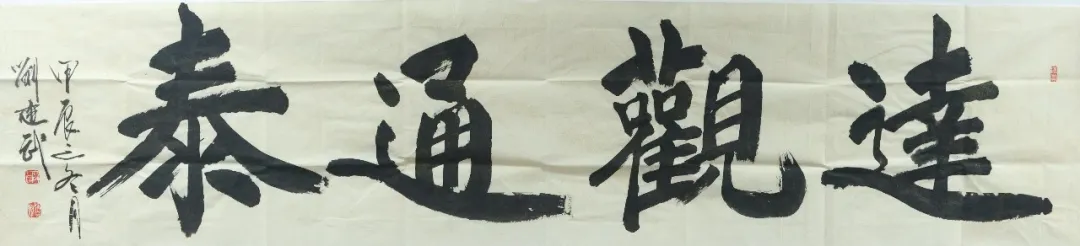 達觀通泰
甲辰之冬月
劉建武